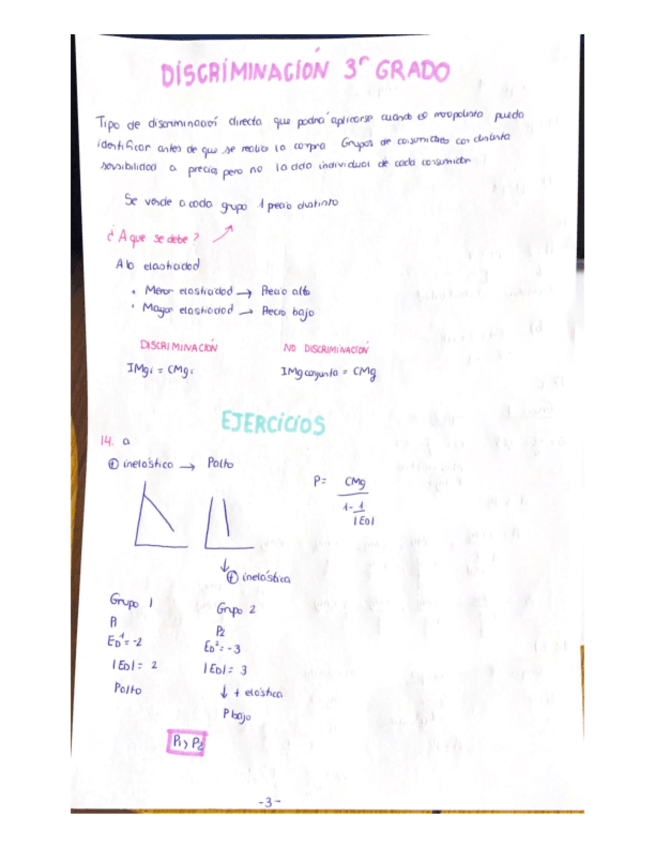 DISCRIMINACIÓN 3r GRADO
Tipo de discriminación directa que podrá aplicarse cuando el monopolista pueda
identificar antes de que se realice la compra Grupos de consumidores con distinta
sensibilidad a precios pero no la ddo individual de cada consumidor
Se vende a cada grupo 1 precio distinto
¿A que se debe?
A la elasticidad
• Menor elasticidad → Precio alto
• Mayor elasticidad → Precio bajo
DISCRIMINACIÓN NO DISCRIMINACIÓN
IMgi = CMgi IMg conjunta = CMg
EJERCICIOS
14. a
⊕ inelástico → P alto
P = CMg
1 - 1
|ED|
↓ ⊕ inelástica
Grupo 1 Grupo 2
P1 P2
ED¹ = -2 ED² = -3
|ED| = 2 |ED| = 3
P alto ↓ + elástica
P bajo
P1 > P2
-3-